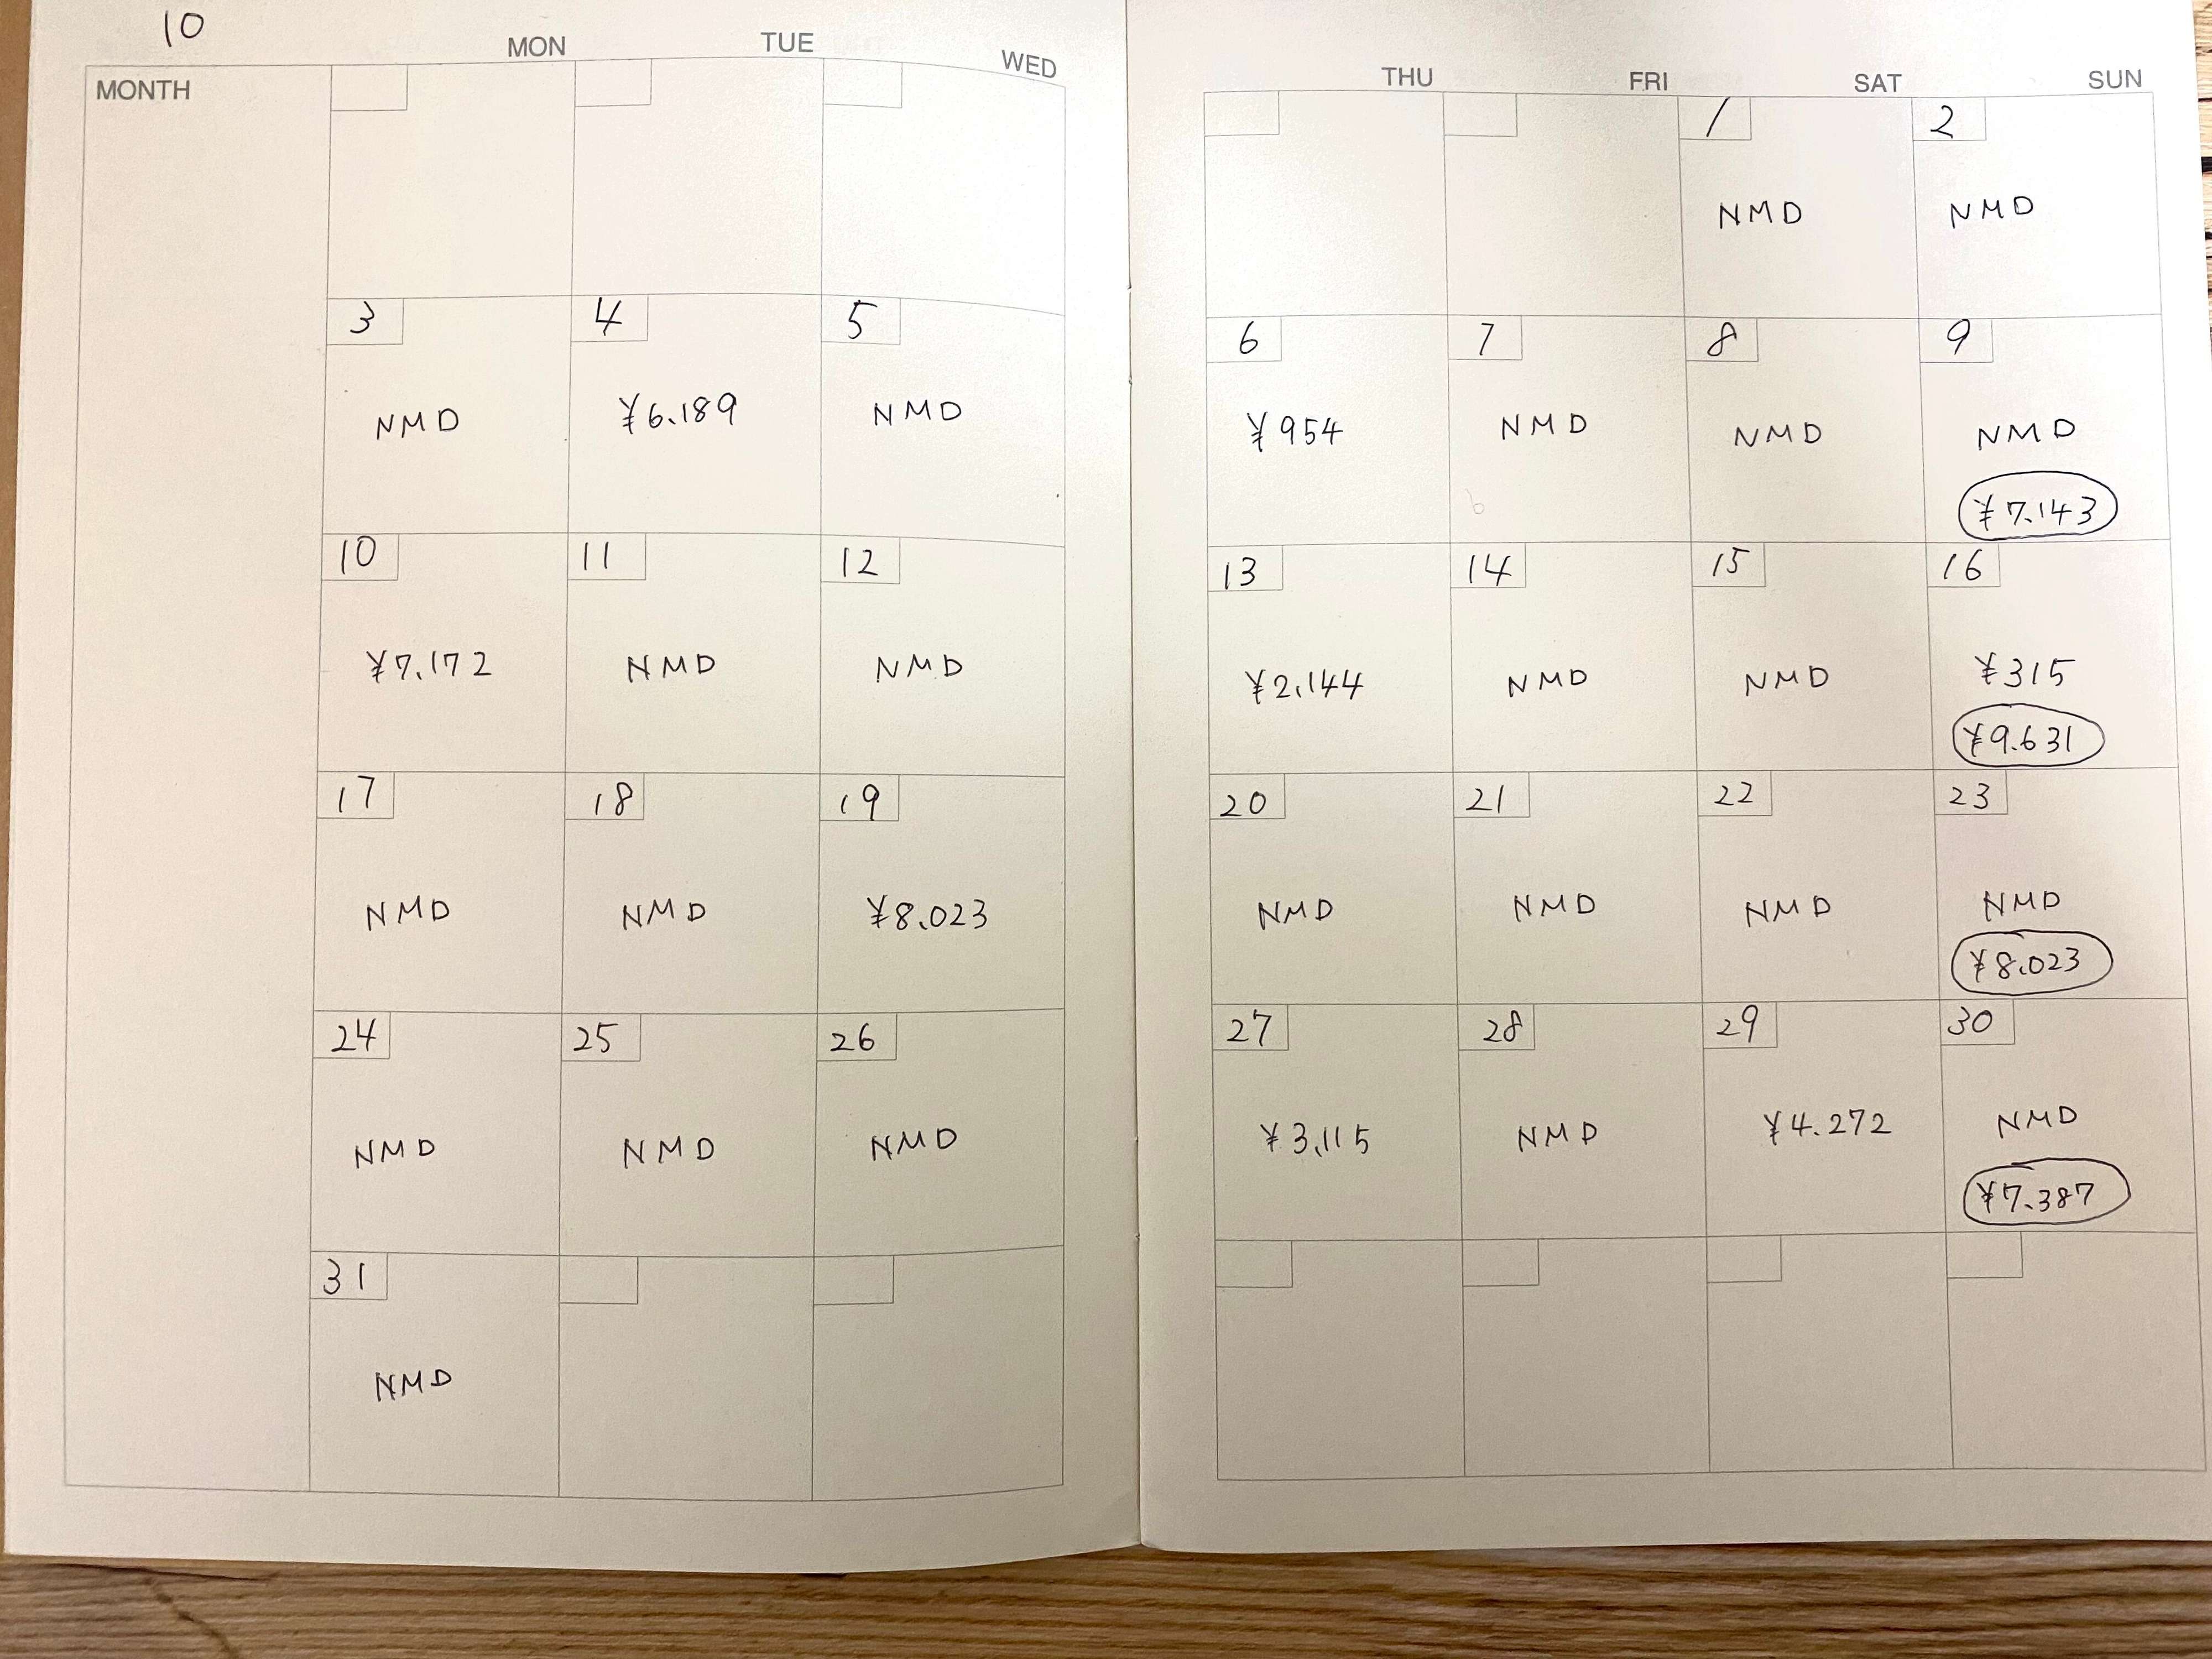 10
MONTH
MON TUE WED THU FRI SAT SUN
1 2
NMD NMD
3 4 5 6 7 8 9
NMD ¥6.189 NMD ¥954 NMD NMD NMD
¥7.143
10 11 12 13 14 15 16
¥7.172 NMD NMD ¥2.144 NMD NMD ¥315
¥9.631
17 18 19 20 21 22 23
NMD NMD ¥8.023 NMD NMD NMD NMD
¥8.023
24 25 26 27 28 29 30
NMD NMD NMD ¥3.115 NMD ¥4.272 NMD
¥7.387
31
NMD